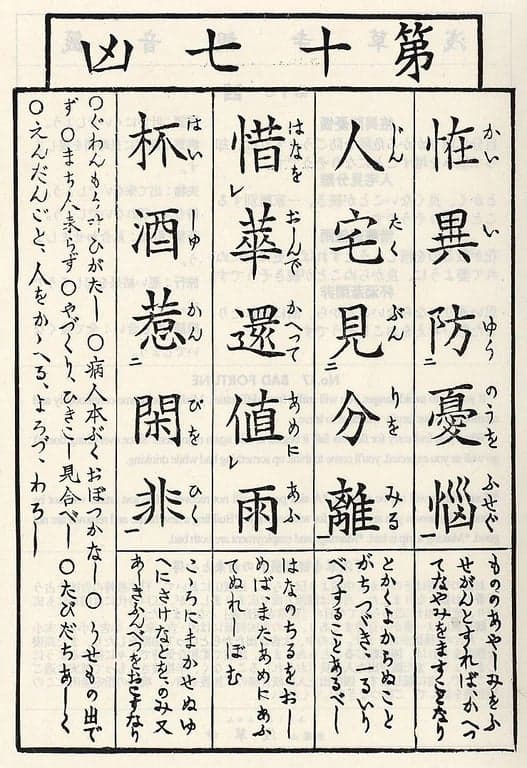 第十七凶
恠異防二憂惱一
かいいゆうのうをふせぐ
もののあやしみをふ
せがんとすればかへつ
てなやみをますことなり
人宅見二分離一
じんたくぶんりをみる
とかくよからぬこと
がちつゞきて一るいり
べつすることあるべし
惜レ華還値レ雨
はなをおしんでかへつてあめにあふ
はなのちるをおし
めばまたあめにあふ
てぬれしぼむ
杯酒惹二閑非一
はいしゆかんぴをひく
こゝろにまかせぬゆ
へにさけなどを、のみ又
あしきふんべつをおこすなり
○ぐわんもう ひがたし ○病人本ぶくおぼつかなし ○うせもの出で
ず ○まち人来らず ○やづくり、ひきこし見合べし ○たびだちあしく
○えんだんごと、人をかゝへる、よろづわろし